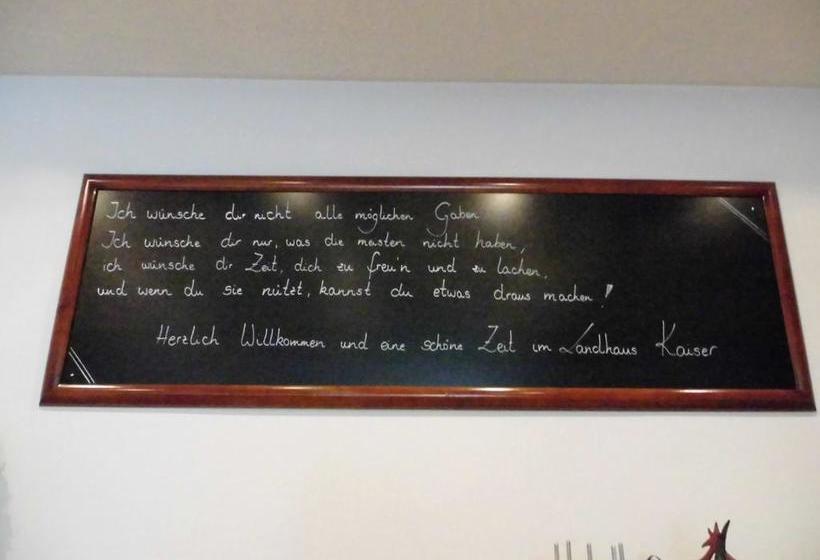 Ich wünsche dir nicht alle möglichen Gaben
Ich wünsche dir nur, was die meisten nicht haben,
ich wünsche dir Zeit, dich zu freu'n und zu lachen,
und wenn du sie nützt, kannst du etwas draus machen!
Herzlich Willkommen und eine schöne Zeit im Landhaus Kaiser